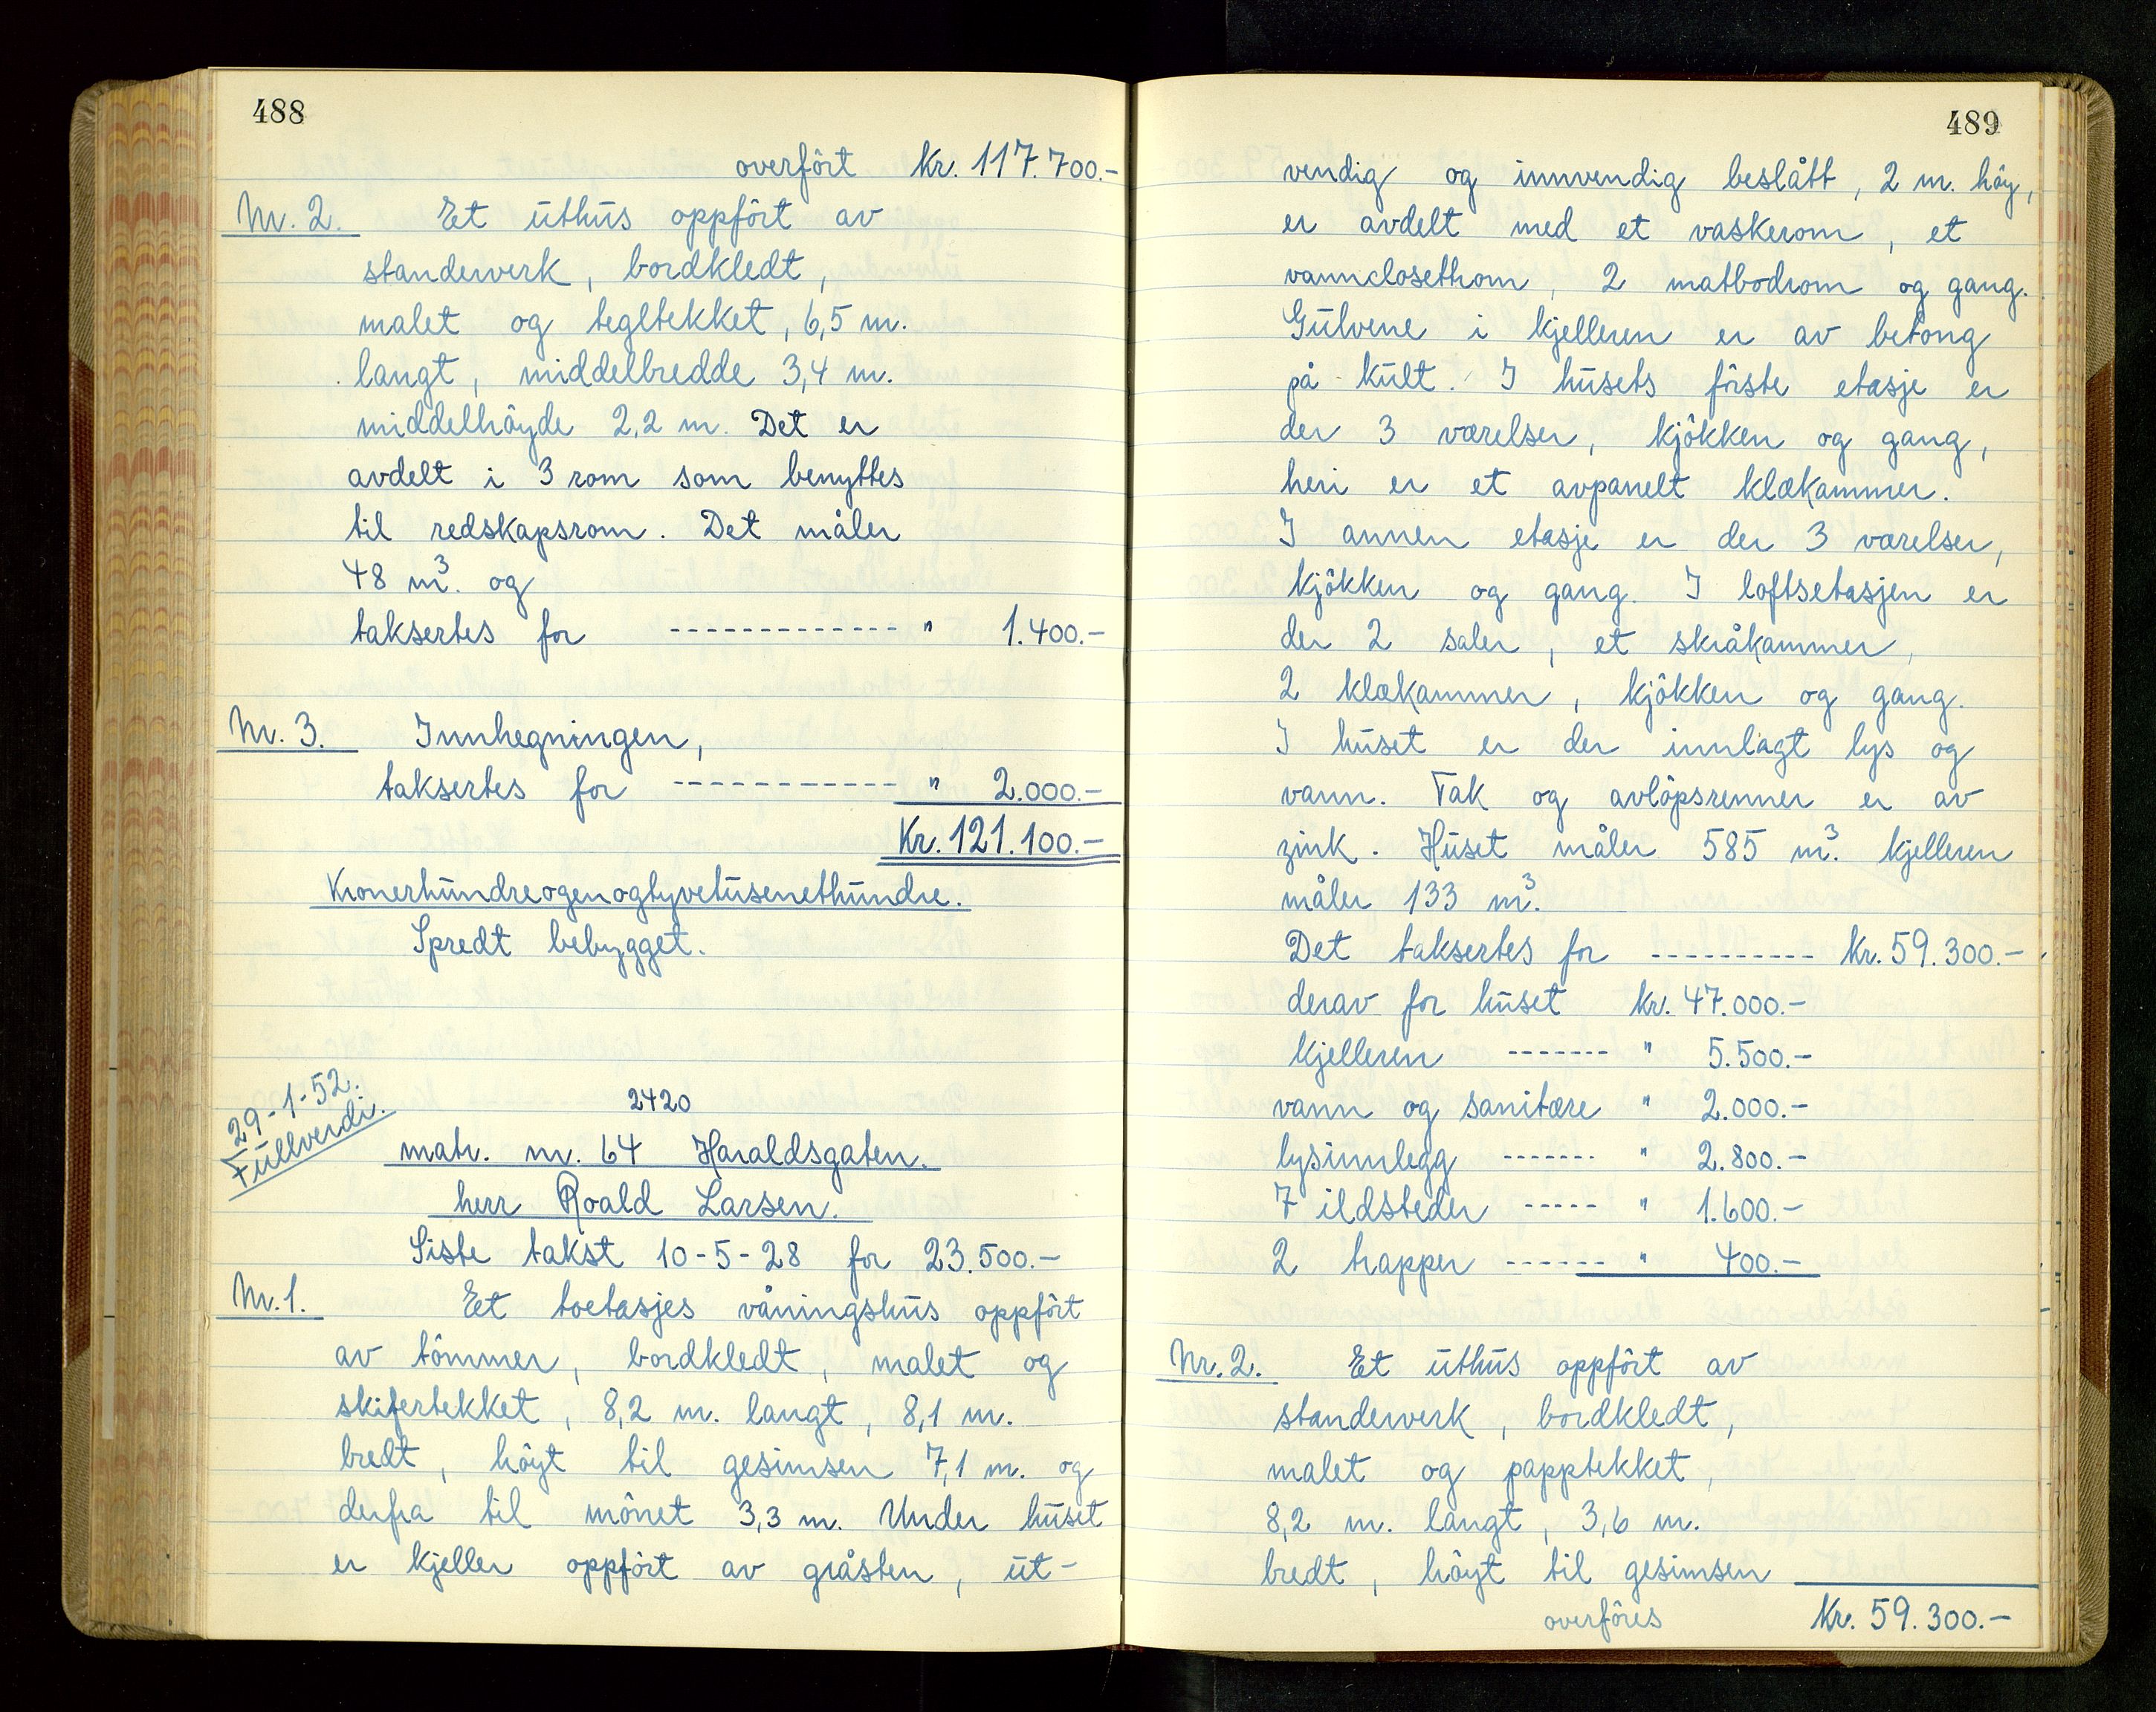 488
overført Kr. 117.700.-
Nr. 2. Et uthus oppført av
standerverk, bordkledt,
malet og tegltekket, 6,5 m.
langt, middelbredde 3,4 m.
middelhøyde 2,2 m. Det er
avdelt i 3 rom som benyttes
til redskapsrom. Det måler
48 m³. og
taksertes for ------------- " 1.400.-
Nr. 3. Innhegningen,
taksertes for ------------- " 2.000.-
Kr. 121.100.-
Kronerhundreogenogtyvetusenethundre.
Spredt bebygget.
29-1-52.
Fullverdi.
2420
matr. nr. 64 Haraldsgaten.
herr Roald Larsen.
Siste takst 10-5-28 for 23.500.-
Nr. 1. Et toetasjes våningshus oppført
av tømmer, bordkledt, malet og
skifertekket, 8,2 m. langt, 8,1 m.
bredt, høyt til gesimsen 7,1 m. og
derfra til mønet 3,3 m. Under huset
er kjeller oppført av gråsten, ut-
489
vendig og innvendig beslått, 2 m. høy,
er avdelt med et vaskerom, et
vannclosethom, 2 matbodrom og gang.
Gulvene i kjelleren er av betong
på kult. I husets første etasje er
der 3 værelser, kjøkken og gang,
heri er et avpanelt klækammer.
I annen etasje er der 3 værelser,
kjøkken og gang. I loftsetasjen er
der 2 saler, et skråkammer,
2 klækammer, kjøkken og gang.
I huset er der innlagt lys og
vann. Tak og avløpsrenner er av
zink. Huset måler 585 m³. kjelleren
måler 133 m³.
Det taksertes for ---------- Kr. 59.300.-
derav for huset Kr. 47.000.-
kjelleren ------- " 5.500.-
vann og sanitære " 2.000.-
lysinnlegg ------- " 2.800.-
7 ildsteder ----- " 1.600.-
2 trapper ------ " 400.-
Nr. 2. Et uthus oppført av
standerverk, bordkledt,
malet og papptekket,
8,2 m. langt, 3,6 m.
bredt, høyt til gesimsen
overføres Kr. 59.300.-